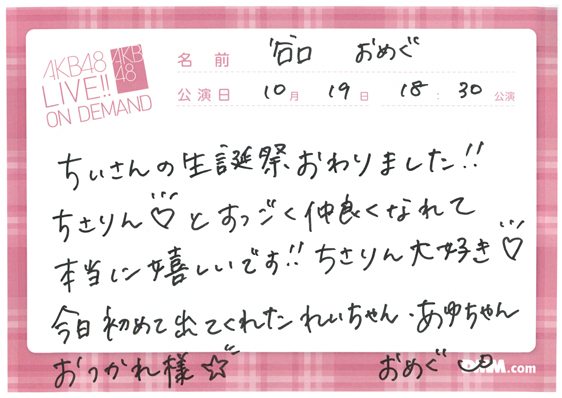 AKB48
LIVE!!
ON DEMAND
AKB
48
名前 谷口 おめぐ
公演日 10月 19日 18:30公演
ちぃさんの生誕祭おわりました!!
ちさりん♡とすっごく仲良くなれて
本当に嬉しいです!! ちさりん大好き♡
今日初めて出てくれたれいちゃん・あゆちゃん
おつかれ様☆ おめぐ
DMM.com